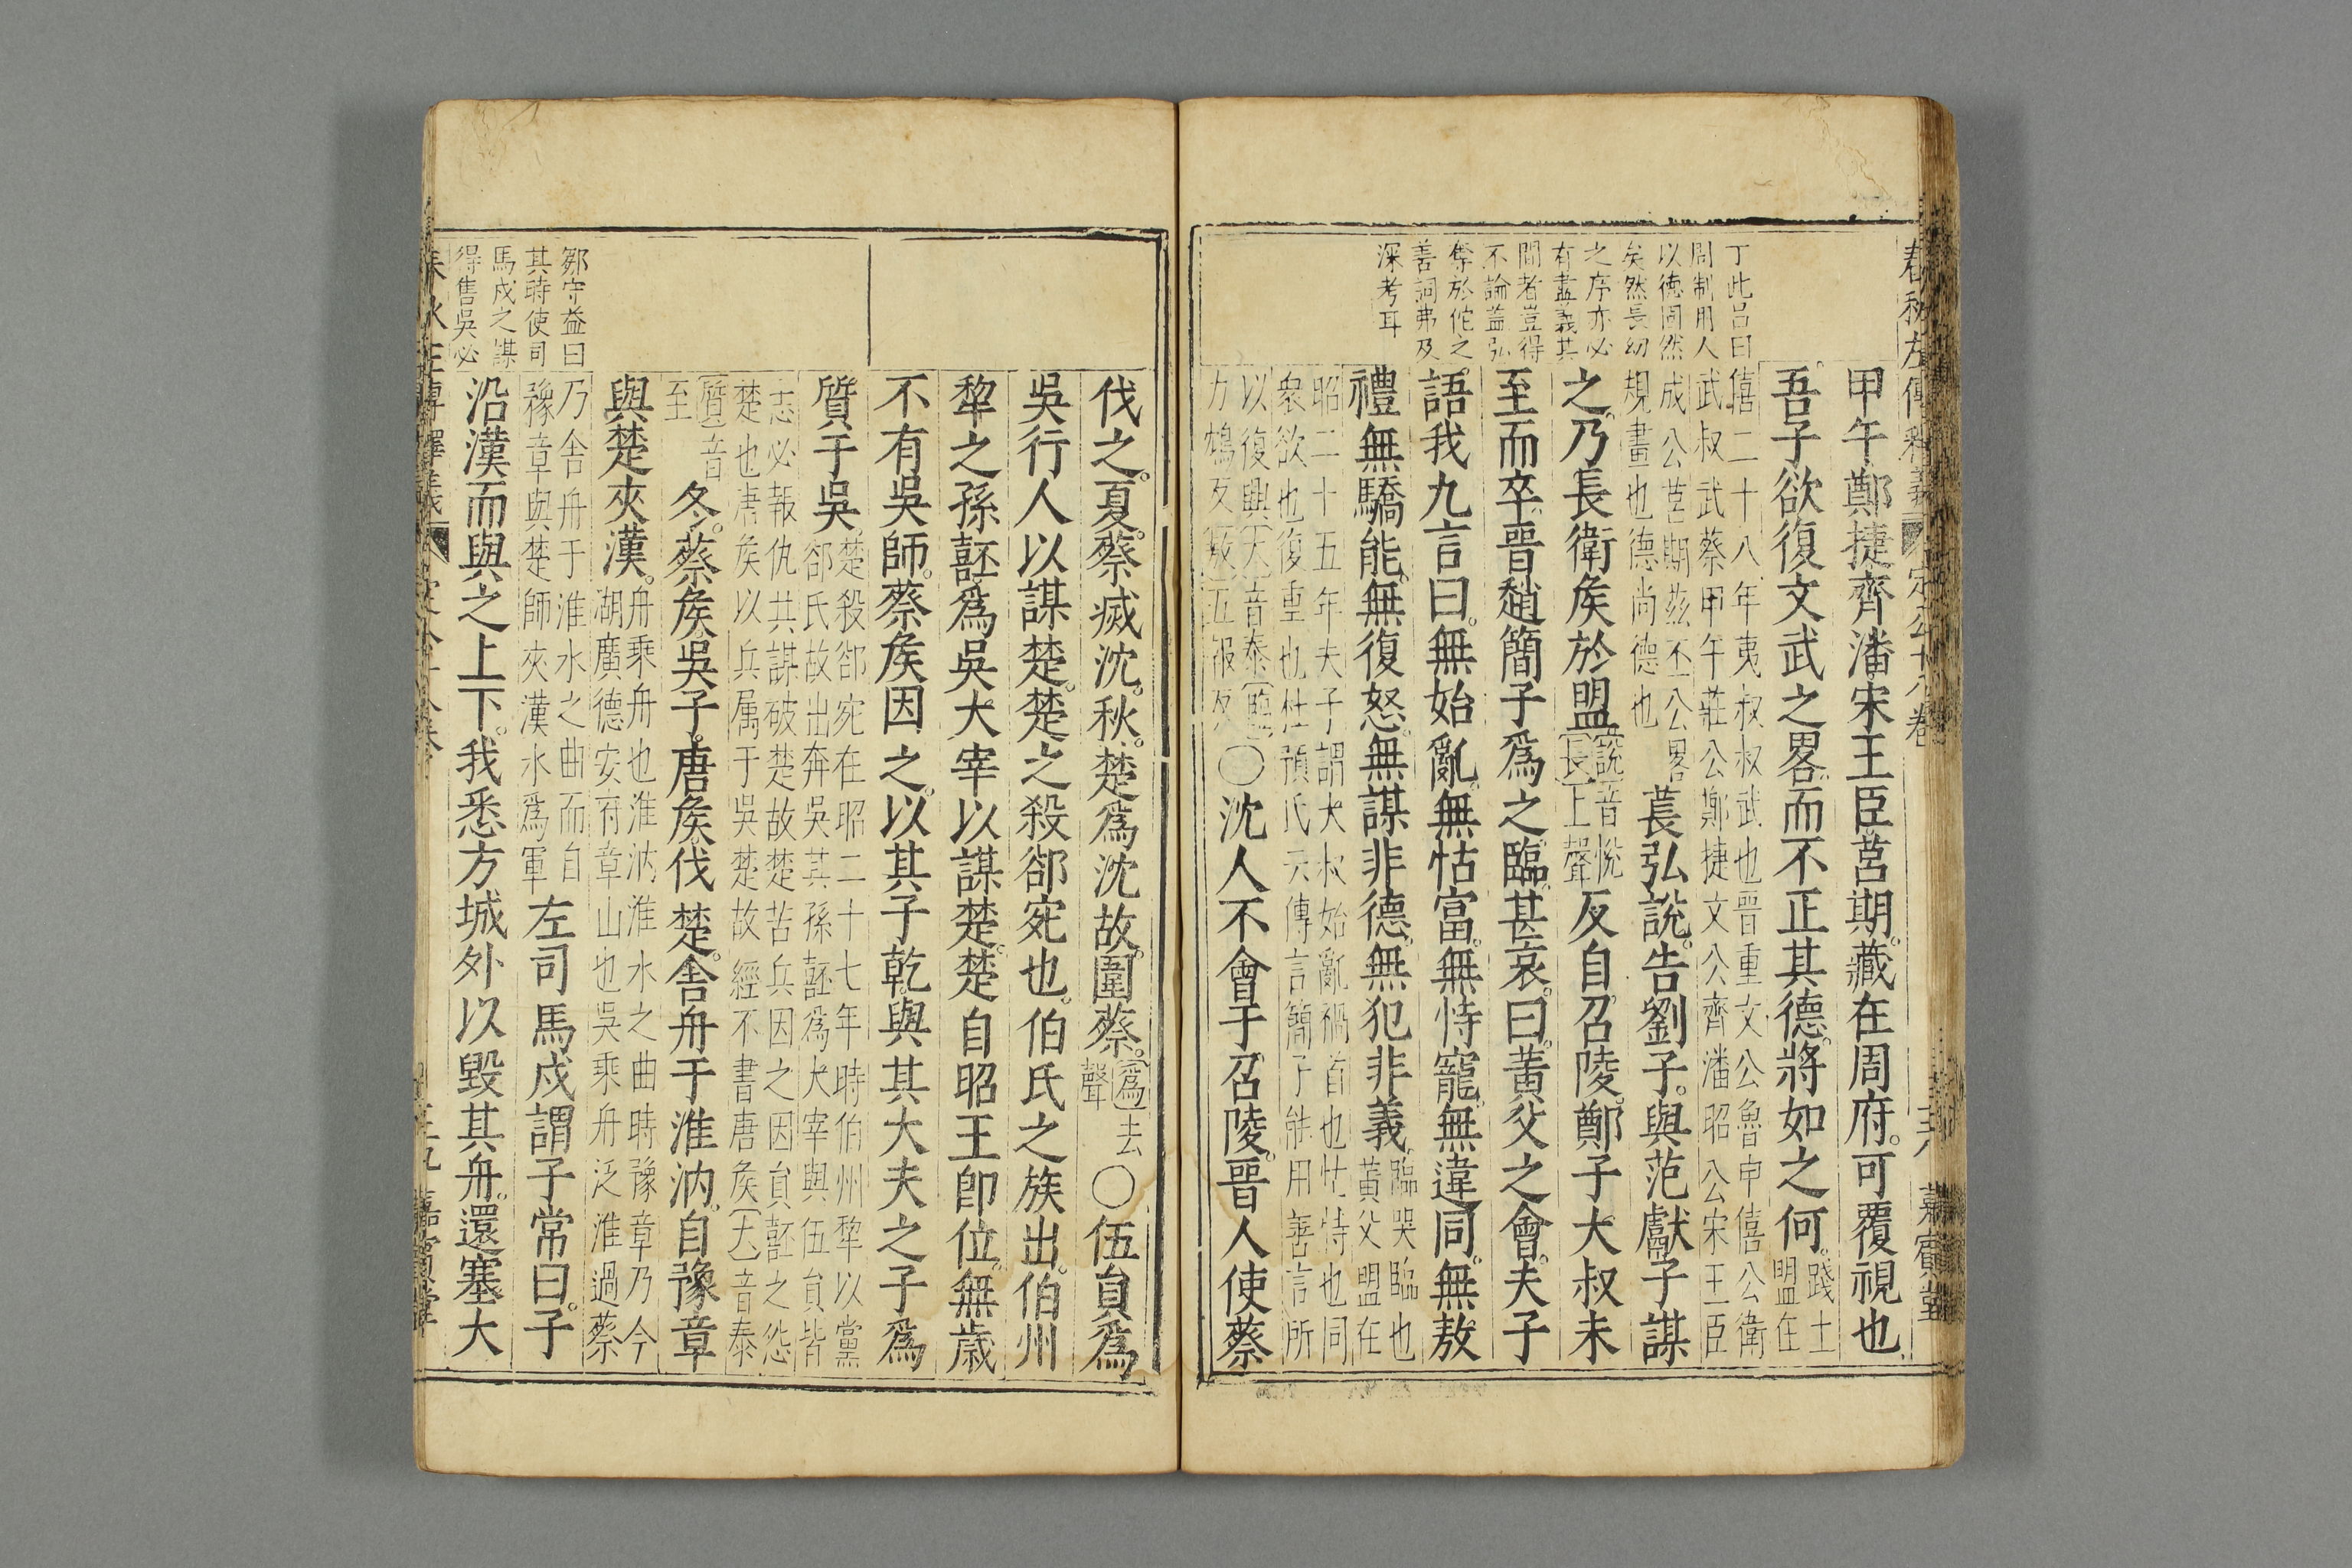 春秋左傳釋義
定公十八卷
三十八
嘉賓堂
丁此吕曰
周制用人
以徳固然
矣然長幼
之序亦必
有盡義其
間者豈得
不論葢弘
奪於佗之
善詞弗及
深考耳
甲午鄭捷齊潘宋王臣莒期。藏在周府。可覆視也
吾子欲復文武之畧。而不正其德。將如之何。踐土
盟在
僖二十八年夷叔叔武也晋重文公魯申僖公衛
武叔武蔡甲午莊公鄭捷文公齊潘昭公宋王臣
成公莒期兹丕公畧
規畫也德尚德也
萇弘說。告劉子。與范獻子謀
之。乃長衛矦於盟。說音悅
長上聲
反自召陵。鄭子大叔未
至而卒。晋趙簡子爲之臨。甚哀。曰。黄父之會。夫子
語我九言曰。無始亂。無怙富。無恃寵。無違同。無敖
禮。無驕能。無復怒。無謀非德。無犯非義。臨哭臨也
黄父盟在
昭二十五年夫子謂大叔始亂禍首也怙恃也同
衆欲也復重也杜預氏云傳言簡子能用善言所
以復興大音泰
○沈人不會于召陵。晋人使蔡
伐之。夏。蔡滅沈。秋。楚爲沈故。圍蔡。爲去
聲
○伍負爲
吳行人以謀楚。楚之殺郤宛也。伯氏之族出。伯州
犂之孫嚭爲吳大宰以謀楚。楚自昭王卽位。無歳
不有吳師。蔡矦因之。以其子乾。與其大夫之子爲
質于吳。楚殺郤宛在昭二十七年時伯州犂以黨
郤氏故出奔吳其孫嚭爲大宰與伍負皆
志必報仇共謀破楚故楚苦兵因之因負嚭之怨
楚也唐矦以兵属于吳楚故經不書唐矦大音泰
質音
至
冬。蔡矦吳子。唐矦伐楚。舎舟于淮汭。自豫章
與楚夾漢。舟乘舟也淮汭淮水之曲時豫章乃今
湖廣德安府章山也吳乘舟泛淮過蔡
乃舎舟于淮水之曲而自
豫章與楚師夾漢水爲軍
左司馬戍謂子常曰。子
沿漢而與之上下。我悉方城外以毀其舟。還塞大
鄒守益曰
其時使司
馬戍之謀
得售吳必
春秋左傳釋義
三十九
嘉賓堂